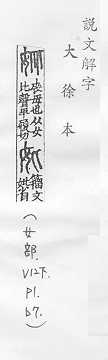 說文解字
大徐本
妣 歿母也从女
比聲卑履切
籒文
妣省
(女部.
V12下.
P1.
b7.)